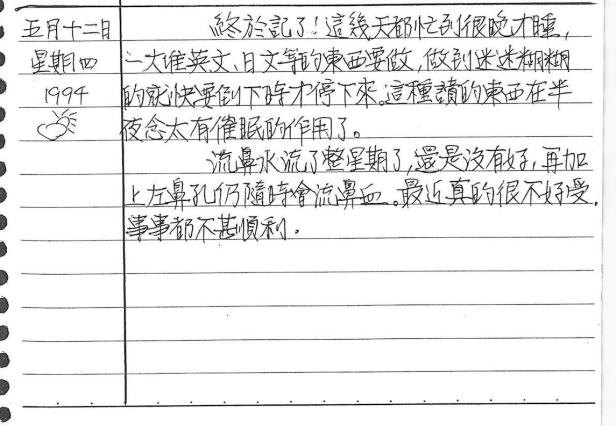 五月十二日
星期四
1994
終於記了!這幾天都忙到很晚才睡,
一大堆英文、日文等的東西要做,做到迷迷糊糊
的就快要倒下時才停下來。這種讀的東西在半
夜念太有催眠的作用了。
流鼻水流了整星期了,還是沒有好,再加
上左鼻孔仍隨時會流鼻血。最近真的很不好受,
事事都不甚順利。